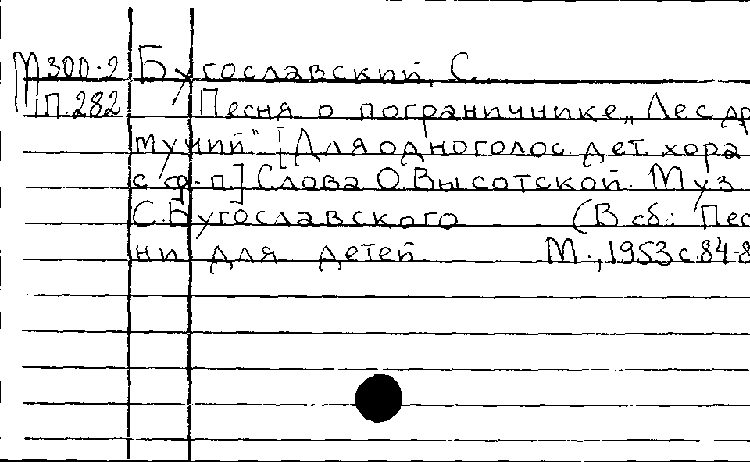 М300-2 Бугославский, С.
П.282 Песня о пограничнике „Лес др
тучий“ [Для одноголос. дет. хора
с ф-п.] Слова О. Высотской. Муз
С. Бугославского (В сб.: Пес
ни для детей М., 1953 с.84-8